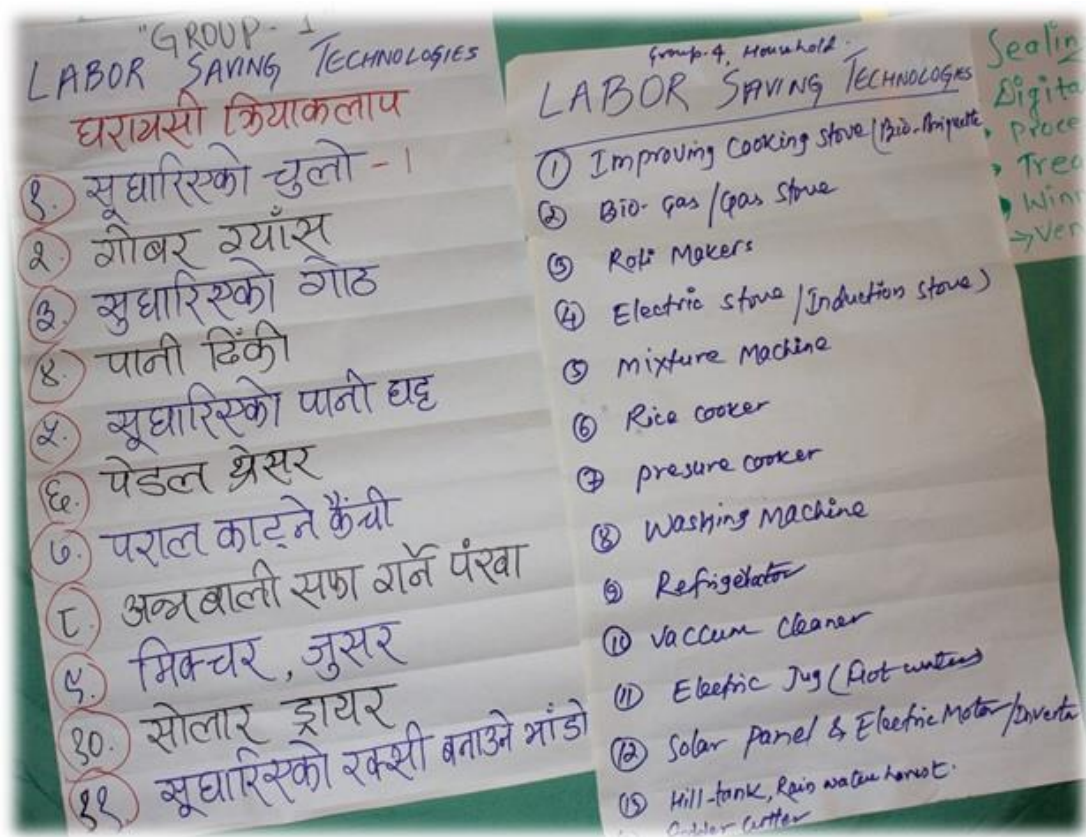 "GROUP - 1
LABOR SAVING TECHNOLOGIES
घरायसी क्रियाकलाप
१. सूधारिएको चुलो - 1
२. गोबर ग्याँस
३. सुधारिएको गोठ
४. पानी ढिंकी
५. सूधारिएको पानी घट्ट
६. पेडल थ्रेसर
७. पराल काट्ने कैंची
८ अन्नबाली सफा गर्ने पंखा
९. मिक्चर, जुसर
१०. सोलार ड्रायर
११ सूधारिएको रक्सी बनाउने भाँडो
Group-4, Household.
LABOR SAVING TECHNOLOGIES
① Improving Cooking stove (Bio-Briquette
② Bio-Gas/Gas stove
③ Roti Makers
④ Electric stove / Induction stove)
⑤ mixture Machine
⑥ Rice cooker
⑦ presure cooker
⑧ Washing Machine
⑨ Refrigelator
⑩ Vaccum Cleaner
⑪ Electric Jug (Hot water)
⑫ Solar Panel & Electric Motor/Inverta
Hill-tank, Rain water harvest.
cutter
Sealin
Digita
Proce
Win
→ Ven